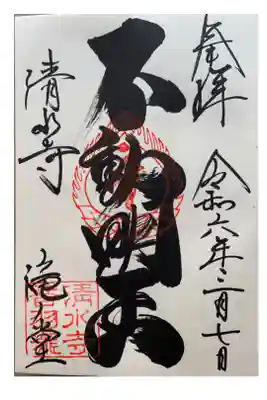 奉拝
令和六年二月七日
不動明王
清水寺
滝之堂
清水寺
音羽瀧